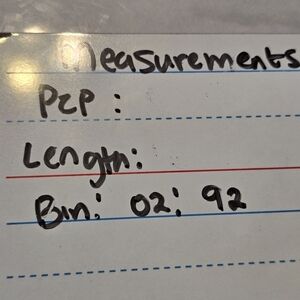 Measurements
PCP :
Length:
Bin: 02: 92